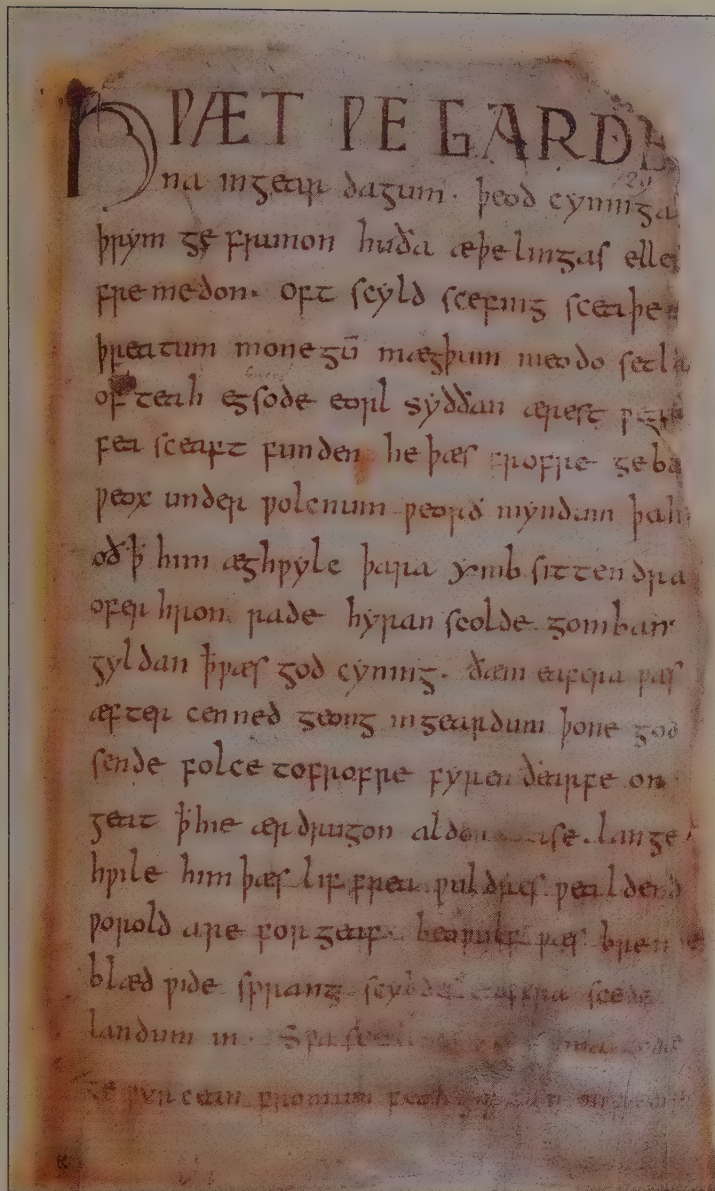 HǷÆT ǷE GARDE
na ingear dagum. þeod cyninga
þrym ge frunon huða æþelingas elle
fremedon. oft scyld scefing sceaþe
þreatum monegū mægþum meodo setla
of teah egsode eorl syððan ærest
fea sceaft funden he þæs frofre geba
ƿeox under ƿolcnum ƿeorð myndum þah
oð þ̄ him æghƿylc þara ymb sittendra
ofer hron rade hyran scolde gomban
gyldan þ̄ ƿæs god cyning. ðæm eafera ƿæs
æfter cenned geong ingeardum þone god
sende folce tofrofre fyren ðearfe on
geat þ̄ hie ær drugon lange
hƿile him þæs lif frea ƿuldres ƿealdend
ƿorold are for geaf. beoƿulf ƿæs breme
blæd ƿide sprang eafera scede
landum in. Sƿa
ge ƿyrcean fromum